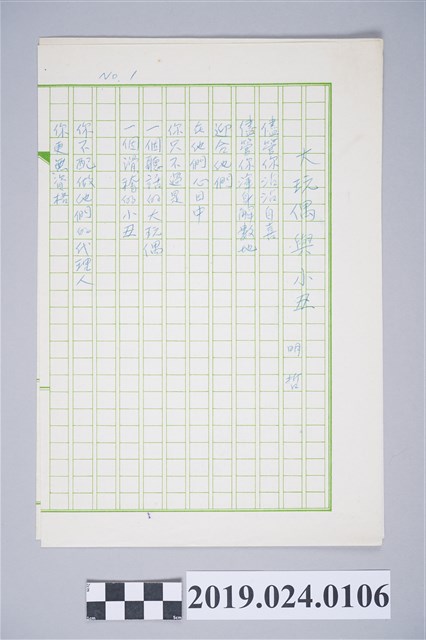 No. 1
大玩偶與小丑
明哲
儘管你沾沾自喜
儘管你渾身解數地
迎合他們
在他們心目中
你只不過是
一個聽話的大玩偶
一個滑稽的小丑
你不配做他們的代理人
你更無資格
2019.024.0106